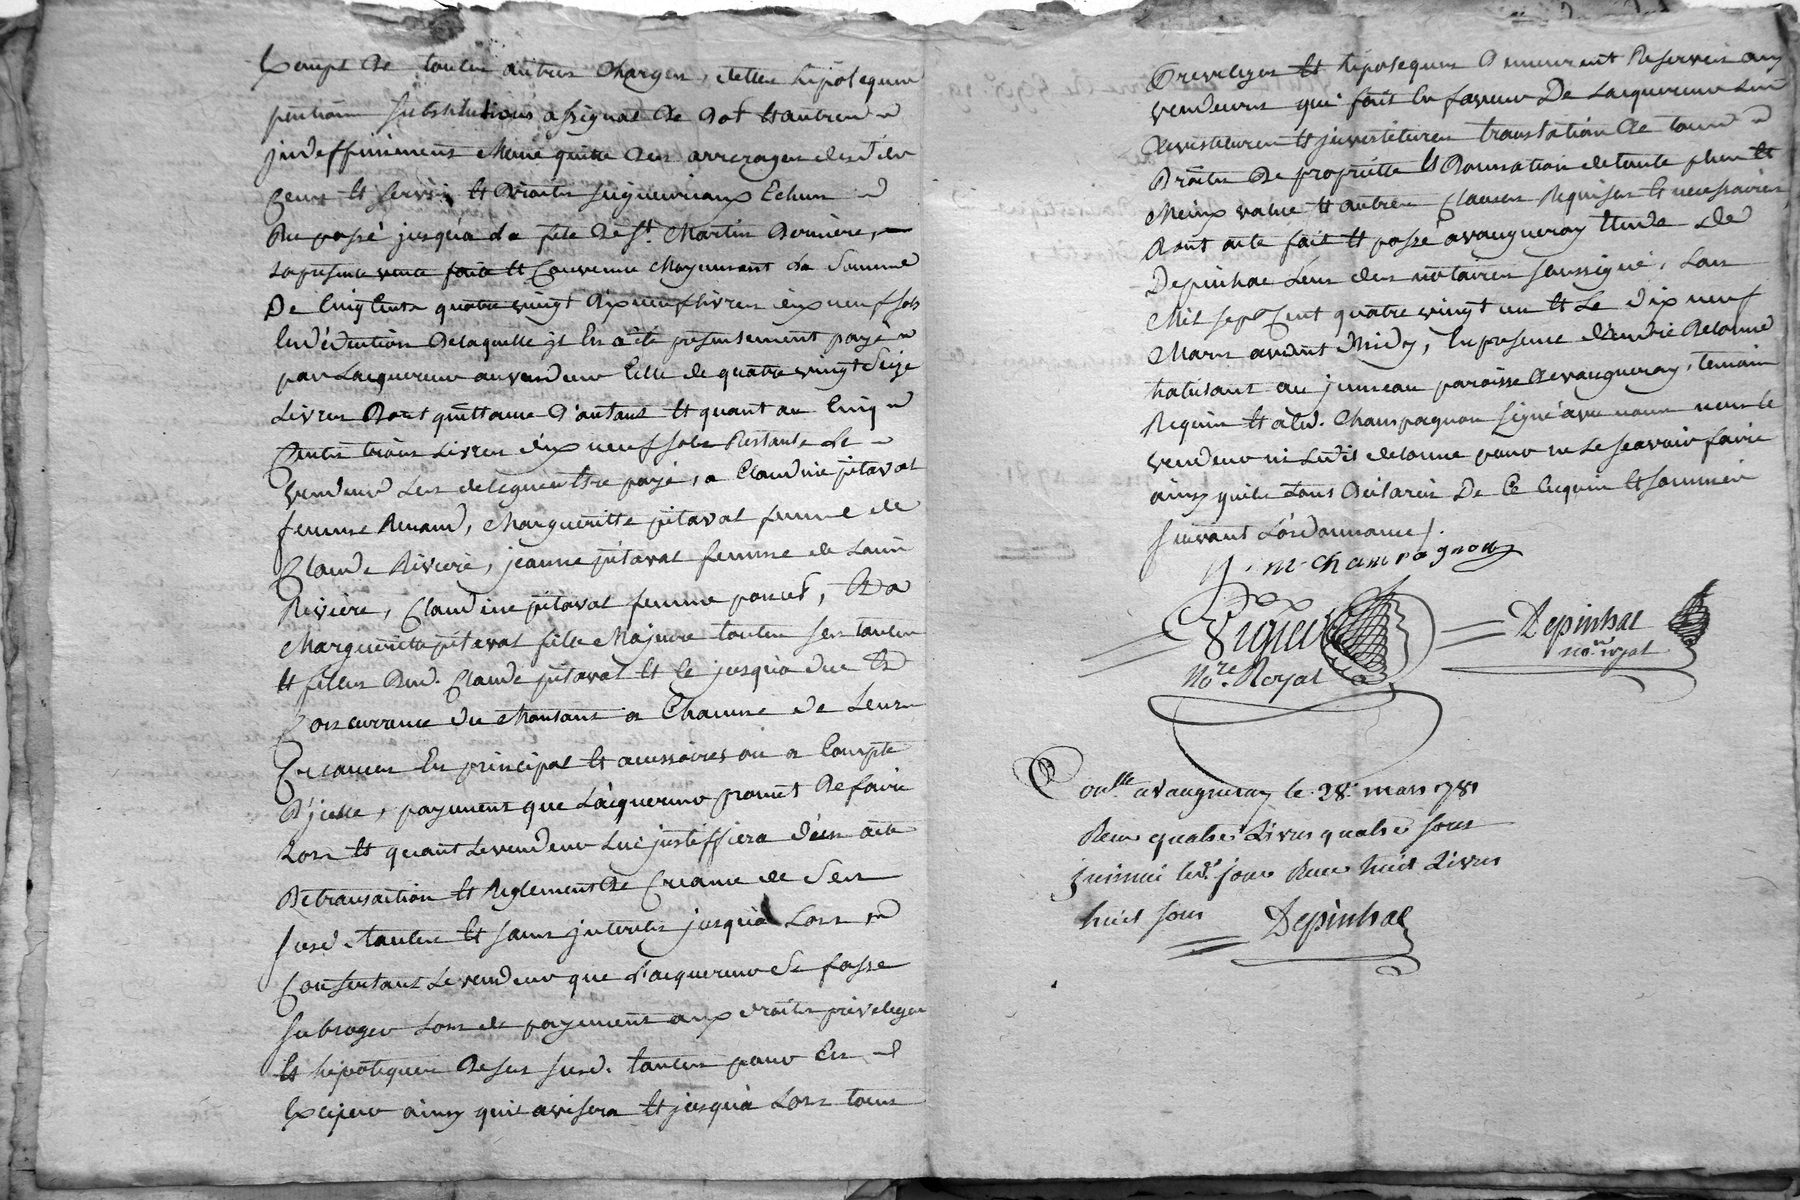 Exempt de toutes autres charges, dettes hipoteques
pentions substitutions assignat de Dot et autres
jndeffiniment Meme quitte des arrerages desd. du
Cens et servis et Droits seigneuriaux Echus
Du passé jusqu'a la fete de st. Martin Derniere,
La presente vente faite et Convenue Moyennant la Somme
De Cinq Cents quatre vingt dix neuf livres dix neuf sols
En déduction De laquelle jl En a été presentement payé
par L'acquereur au vendeur Celle de quatre vingt Seize
Livres Dont quittance D'autant et quant au Cinq
Cents trois Livres dix neuf sols Restants Le
vendeur Les delegue Etre payé, a Claudine pitaval
femme Renaud, Margueritte pitaval femme de
Claude Riviere, jeanne pitaval femme de Louis
Riviere, Claudine pitaval femme poncet, Et a
Margueritte pitaval fille Majeure toutes ses tantes
et filles dud. Claude pitaval et ce jusqu'a due Et
Concurrance du Montant a Chacune de Leurs
Creances En principal et accessoires ou a Compte
D'jcelle, payement que L'acquereur promet De faire
Lors et quant Le vendeur Lui justiffiera d'un acte
De transaction et Reglement De Creance de Ses
susd. tantes et sans jnterets jusqu'a Lors
Consentant Le vendeur que L'acquereur Se fasse
subroger Lors de payement aux droits privileges
et hipoteques De ses susd. tantes pour En
Exciper ainsy qu'il avisera et jusqu'a Lors tous
Privileges et hipoteques Demeurent Reservés aux
vendeurs qui fait En faveur De L'acquereur Les
Devestitures et jnvestitures translation de tous
Droits De propriette et Donnation de toute plus et
Meinx value et autres Clauses Requises et necessaires
Dont acte fait et passé a vaugneray Etude De
Depinhac L'un des notaires soussigné, L'an
Mil sept Cent quatre vingt un et Le dix neuf
Mars avant Midy, En presence d'andré Delorme
habitant au jumeau paroisse De vaugneray, temoin
Requis et a Led. Champagnon signé avec nous non le
vendeur ni Ledit delorme pour ne Le scavoir faire
ainsy qu'ils L'ont Déclaré De Ce Enquis et sommés
suivant L'ordonnance /.
J. M. Champagnon
Viguet Depinhac
No.re Royal no.re royal
Con.lle a vaugneray le 28. mars 1781
Recu quatre Livres quatre sous
jnsinué led. jour Recu huit Livres
huit sous Depinhac